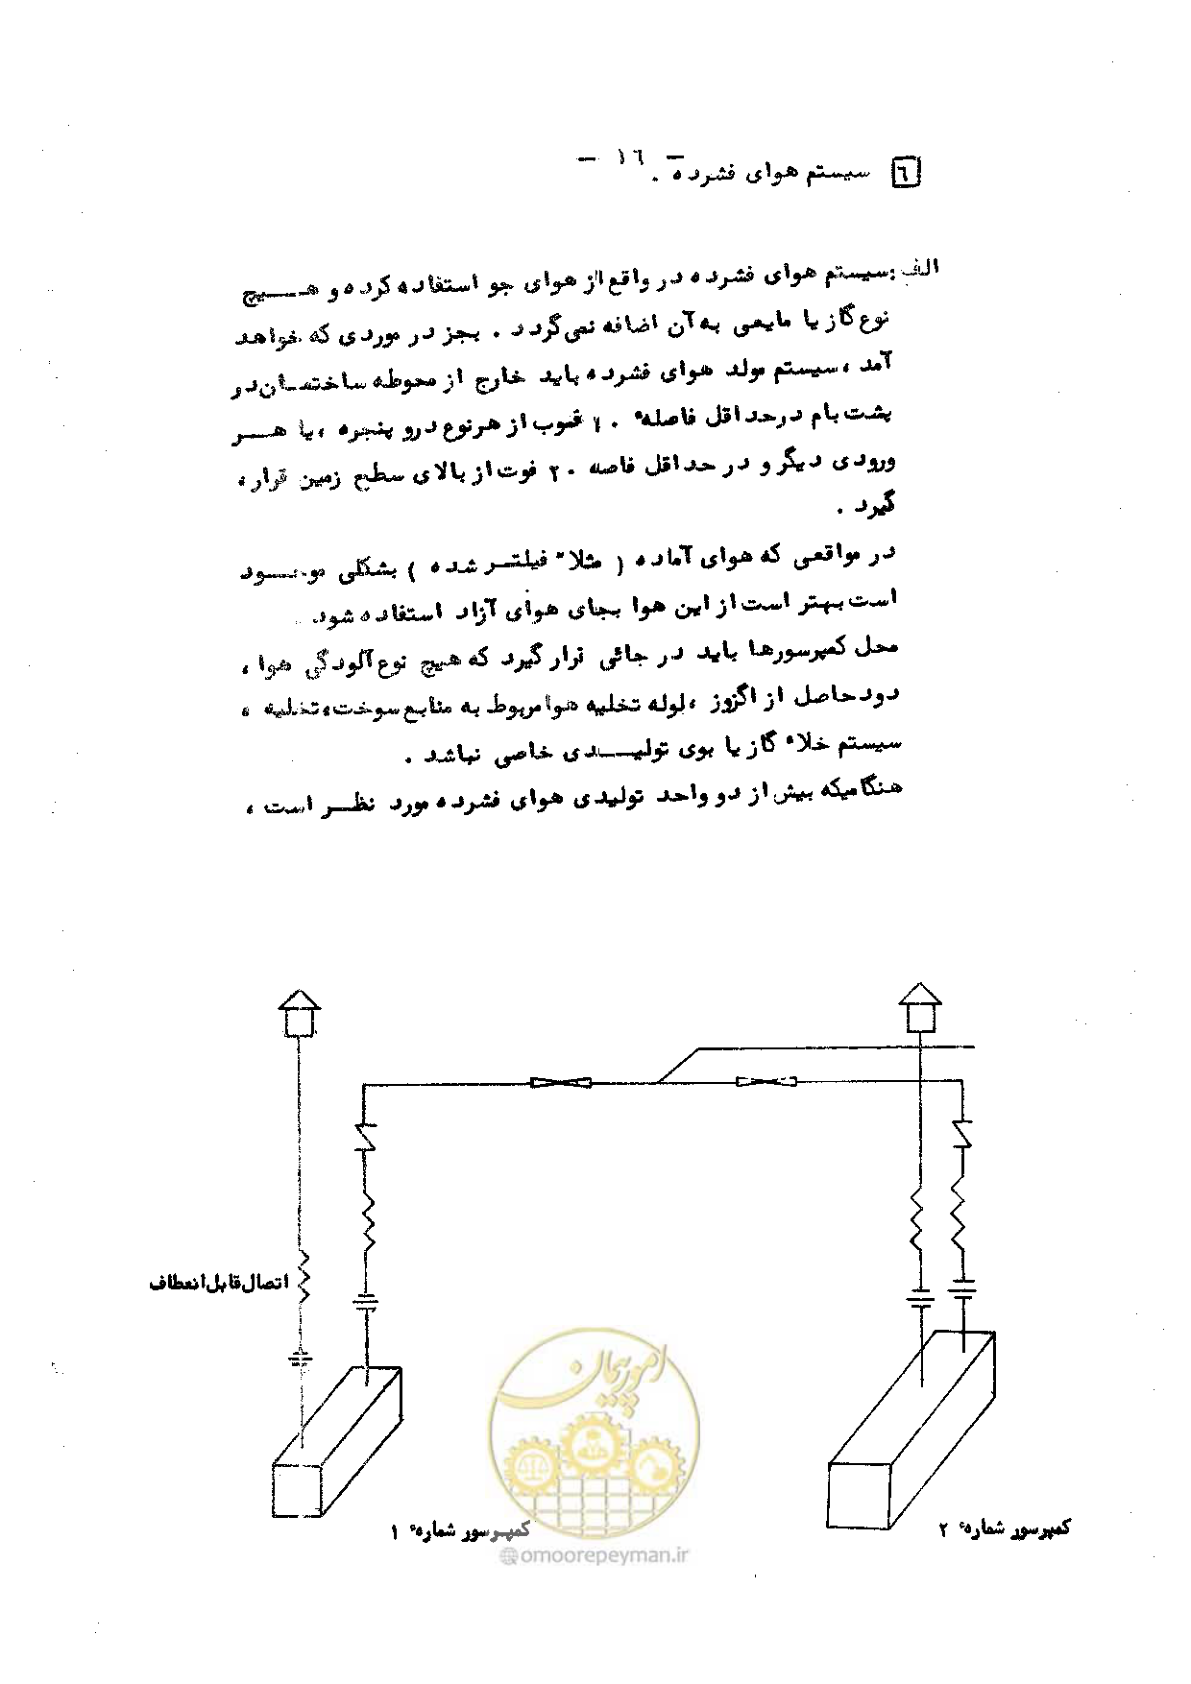 - ١٦ -
٦ سیستم هوای فشرده .
الف : سیستم هوای فشرده در واقع از هوای جو استفاده کرده و هیچ
نوع گاز یا مایعی به آن اضافه نمی‌گردد . بجز در موردی که خواهد
آمد ، سیستم مولد هوای فشرده باید خارج از محوطه ساختمان در
پشت بام در حداقل فاصلهٔ ١٠ از هر نوع در و پنجره ، یا هر
ورودی دیگر و در حداقل فاصه ٢٠ فوت از بالای سطح زمین قرار ،
گیرد .
در مواقعی که هوای آماده ( مثلا" فیلتر شده ) بشکلی موجود
است بهتر است از این هوا بجای هوای آزاد استفاده شود .
محل کمپرسورها باید در جائی قرار گیرد که هیچ نوع آلودگی هوا ،
دود حاصل از اگزوز ، لوله تخلیه هوا مربوط به منابع سوخت ، تخلیه ،
سیستم خلاء گاز یا بوی تولیدی خاصی نباشد .
هنگامیکه بیش از دو واحد تولیدی هوای فشرده مورد نظر است ،
اتصال قابل انعطاف
امور پیمان
کمپرسور شمارهٔ ١
کمپرسور شمارهٔ ٢
@omoorepeyman.ir